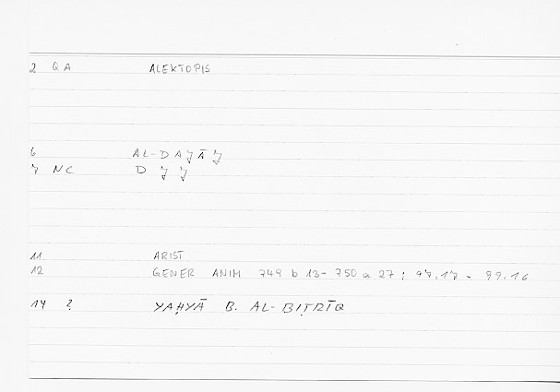 2 QA ALEKTOPIS
6 AL-DAJĀJ
7 NC D J J
11 ARIST
12 GENER ANIM 749 b 13 - 750 a 27 ; 97.17 - 99.16
14 ? YAḤYĀ B. AL-BIṬRĪQ